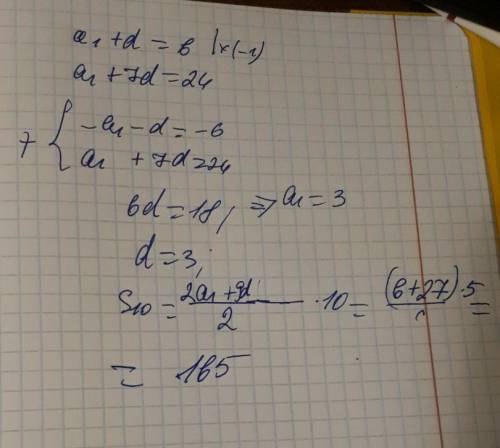 a₁ + d = 6 | × (-1)
a₁ + 7d = 24
+ { -a₁ - d = -6
a₁ + 7d = 24
6d = 18, ⇒ a₁ = 3
d = 3,
S₁₀ = (2a₁ + 9d)/2 · 10 = (6 + 27) · 5 =
= 165